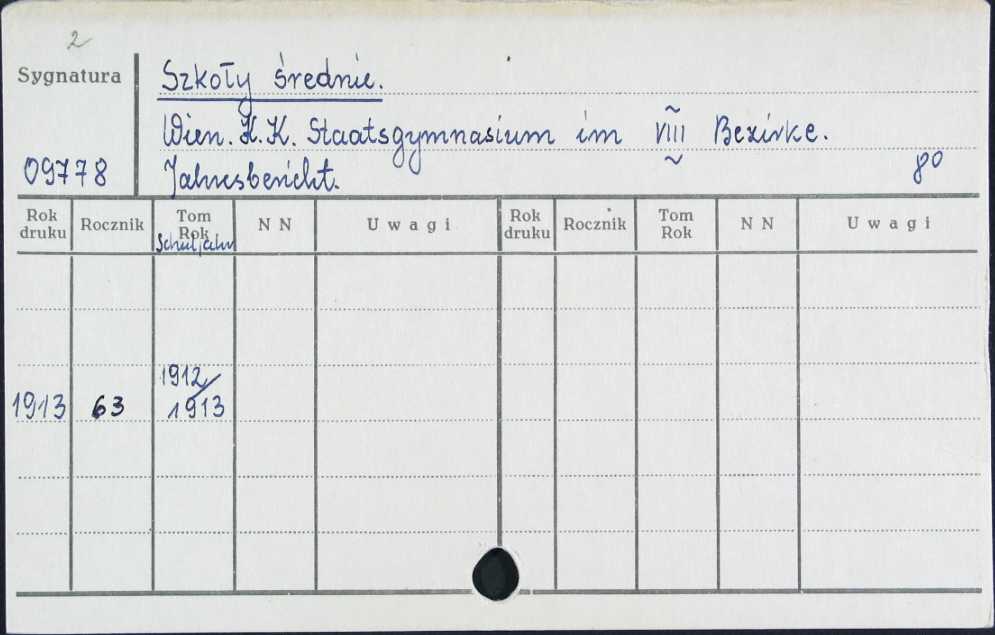 2
Sygnatura
Szkoły średnie.
Wien. K.K. Staatsgymnasium im VIII Bezirke.
09778
Jahresbericht.
8º
Rok druku Rocznik Tom Rok N N Uwagi Rok druku Rocznik Tom Rok N N Uwagi
Schuljahr
1912/
1913 63 1913